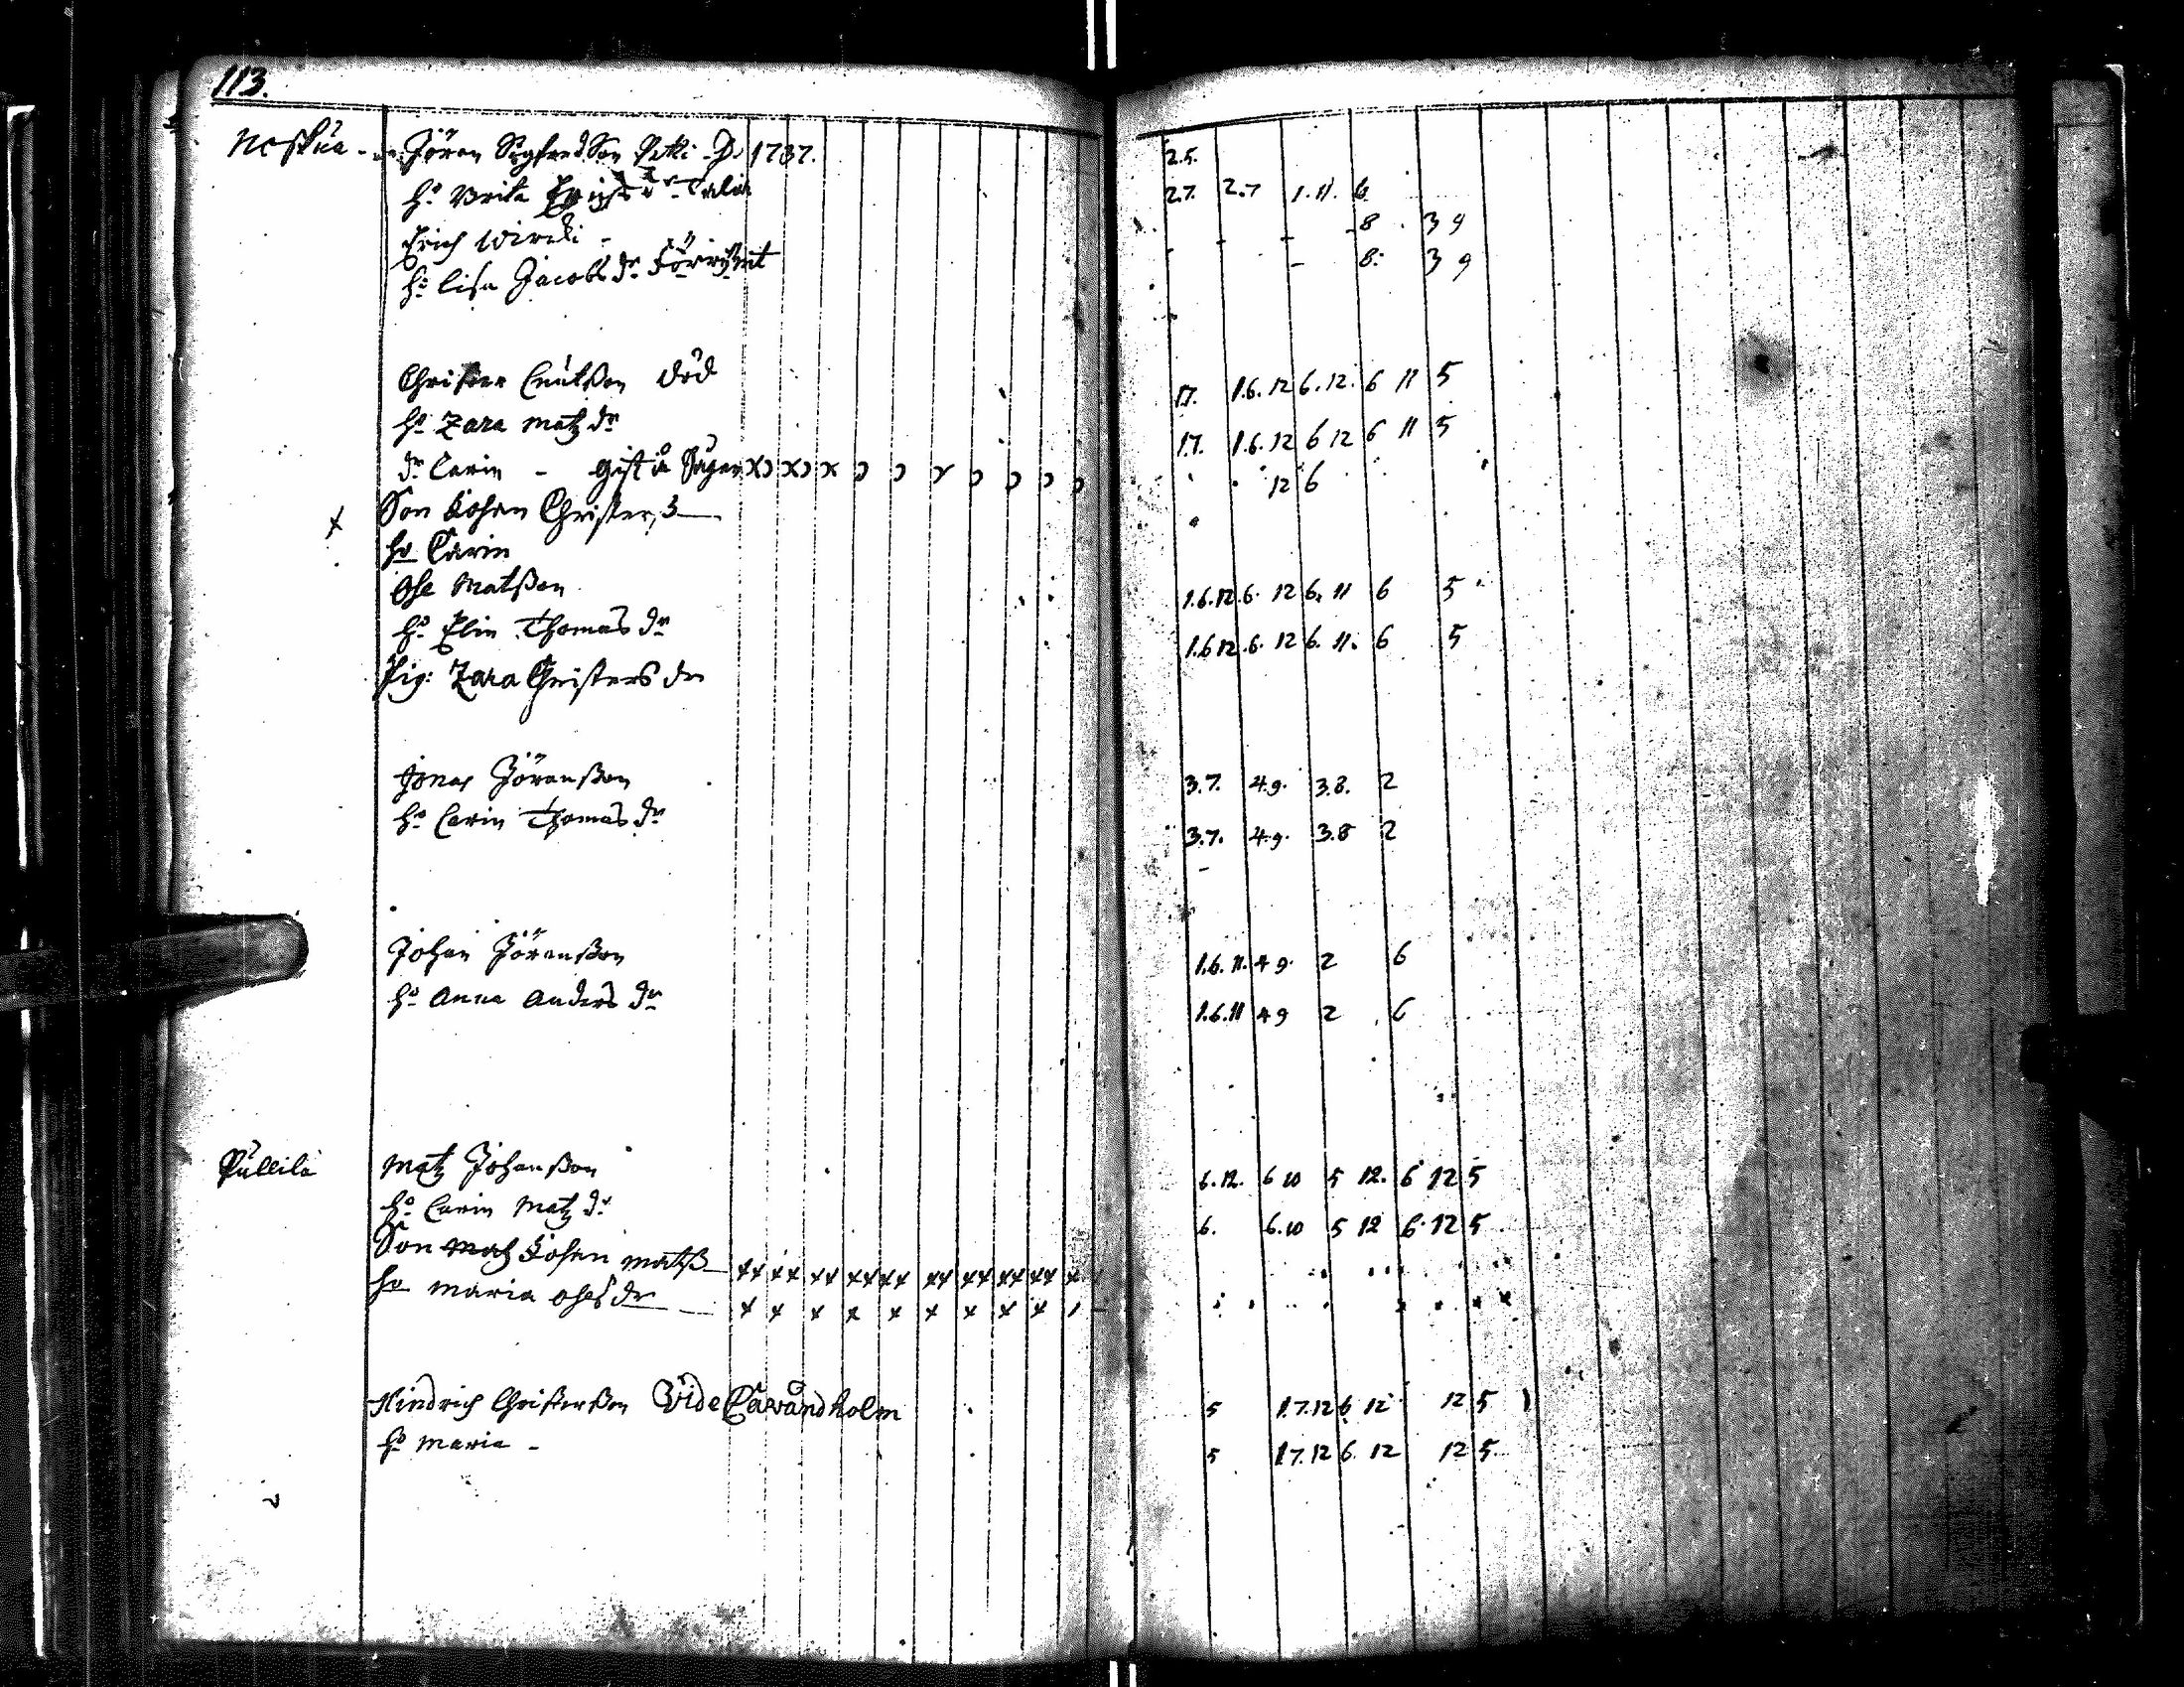 113.
Jören Sigfredson 1737. 2.5.
ho Brita 2.7. 2.7 1.11. 6
Erich - - - - 8 3 9
ho Lisa Jacobs dr Förrymt - 8. 3 9
Christer Cnutßon död 17. 1.6.12 6.12. 6 11 5
ho Zara Matz dr 17. 1.6.12 6 12 6 11 5
dr Carin - gift 12 6
x Son Johan Christers
ho Carin
Matßon 1.6.12 6. 12 6. 11 6 5
ho Elin Thomas dr 1.6 12 6. 12 6. 11. 6 5
Pig: Zara Christers dr
Jonas Jörenßon 3.7. 4.9. 3.8. 2
ho Carin Thomas dr 3.7. 4.9. 3.8 2
Johan Jörenßon 1.6.11. 4 9. 2 6
ho Anna Anders dr 1.6.11 4 9 2 6
Pullila Matz Johanßon 6.12. 6 10 5 12. 6 12 5
ho Carin Matz dr 6. 6.10 5 12 6. 12 5
Son Matz Johan Matß xx xx xx xxxx xx xx xx xx x
ho Maria dr x x x x x x x x x
Hindrich Christerßon Vide 5 1.7.12 6 12 12 5
ho Maria - 5 1.7.12 6. 12 12 5